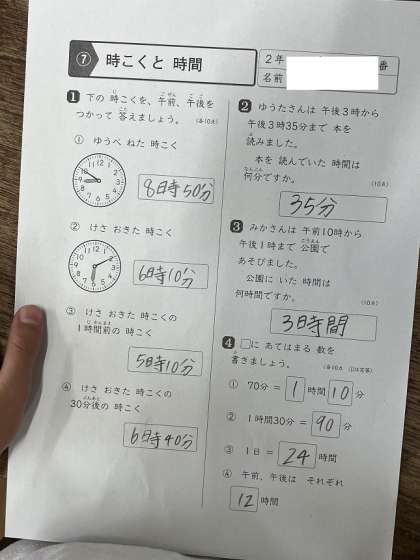 ⑦ 時こくと 時間
2年 番
名前
1 下の 時こくを、午前、午後を
つかって 答えましょう。 (各10点)
① ゆうべ ねた 時こく
8時50分
② けさ おきた 時こく
6時10分
③ けさ おきた 時こくの
1時間前の 時こく
5時10分
④ けさ おきた 時こくの
30分後の 時こく
6時40分
2 ゆうたさんは 午後3時から
午後3時35分まで 本を
読みました。
本を 読んでいた 時間は
何分ですか。 (10点)
35分
3 みかさんは 午前10時から
午後1時まで 公園で
あそびました。
公園に いた 時間は
何時間ですか。 (10点)
3時間
4 □に あてはまる 数を
書きましょう。
① 70分 = 1 時間 10 分
② 1時間30分 = 90 分
③ 1日 = 24 時間
④ 午前、午後は それぞれ
12 時間